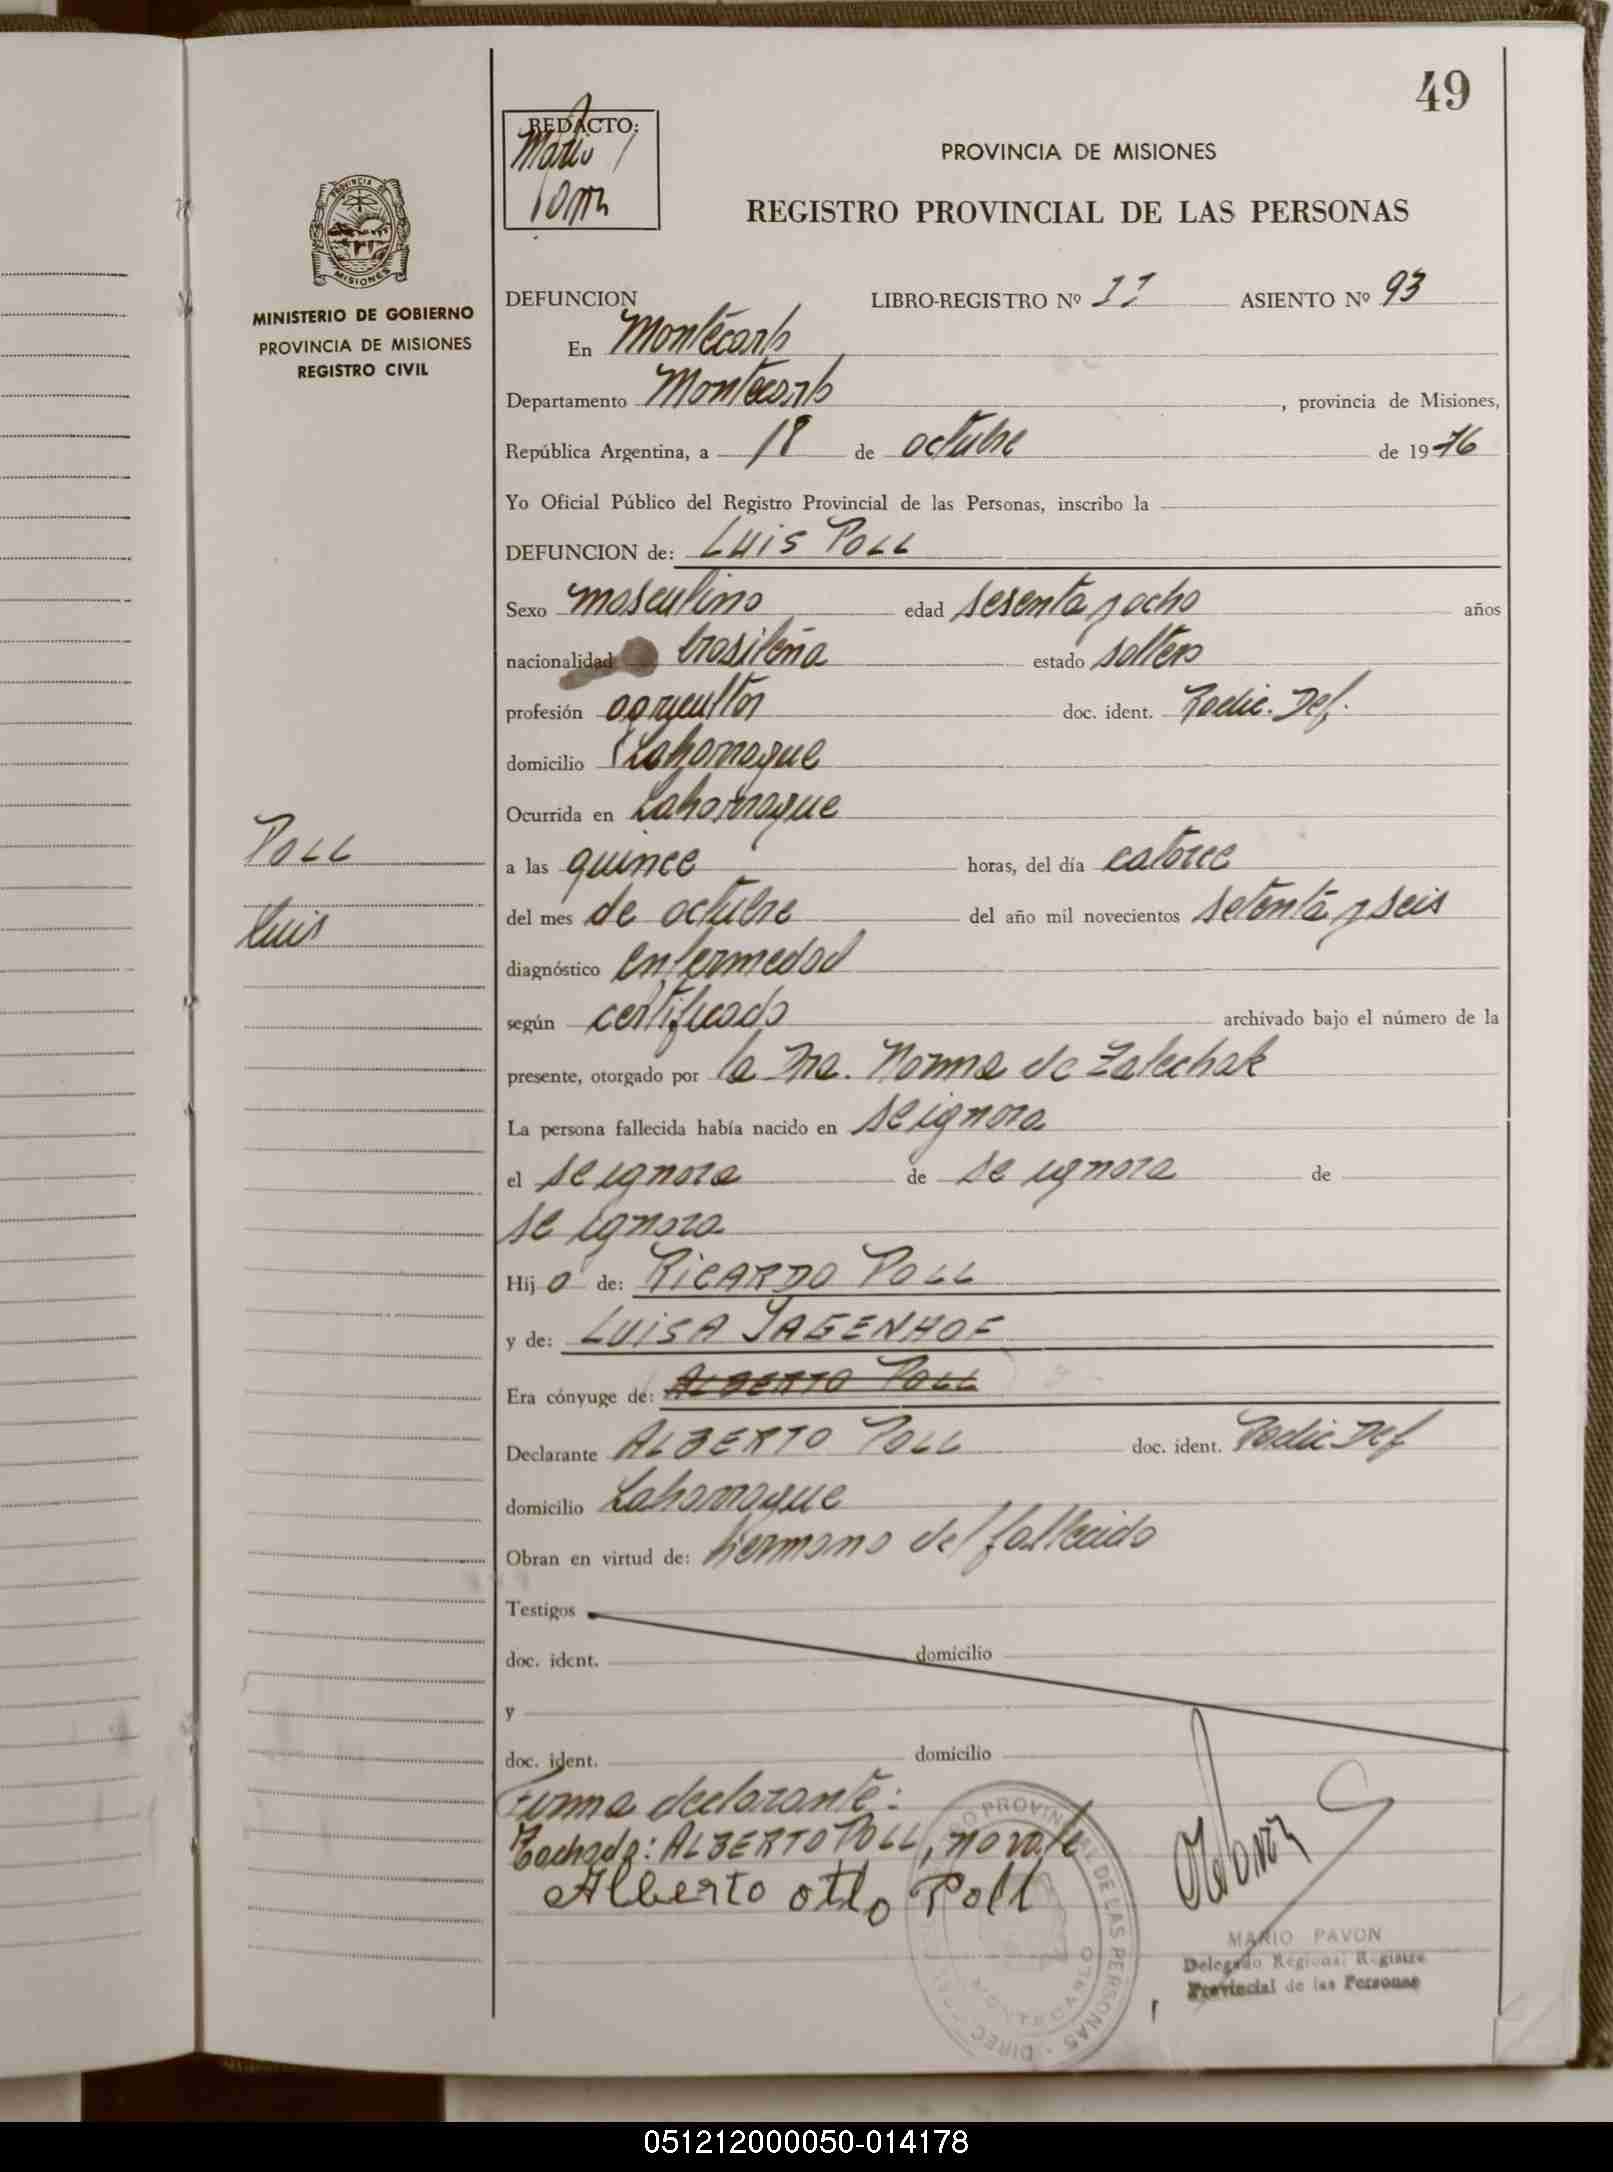 49
REDACTO:
Mario
PROVINCIA DE MISIONES
REGISTRO PROVINCIAL DE LAS PERSONAS
PROVINCIA DE
MISIONES
MINISTERIO DE GOBIERNO
PROVINCIA DE MISIONES
REGISTRO CIVIL
DEFUNCION LIBRO-REGISTRO Nº 11 ASIENTO Nº 93
En Montecarlo
Departamento Montecarlo, provincia de Misiones,
República Argentina, a 18 de octubre de 1976
Yo Oficial Público del Registro Provincial de las Personas, inscribo la
DEFUNCION de: LUIS POLL
Sexo masculino edad sesenta y ocho años
nacionalidad brasileña estado soltero
profesión agricultor doc. ident. Radic. Def.
domicilio Laharrague
Ocurrida en Laharrague
POLL
a las quince horas, del día catorce
Luis
del mes de octubre del año mil novecientos setenta y seis
diagnóstico enfermedad
según certificado archivado bajo el número de la
presente, otorgado por la Dra. Norma de Zalechak
La persona fallecida había nacido en se ignora
el se ignora de se ignora de
se ignora
Hijo de: RICARDO POLL
y de: LUISA JAGENHOF
Era cónyuge de: ALBERTO POLL
Declarante ALBERTO POLL doc. ident. Radic Def
domicilio Laharrague
Obran en virtud de: hermano del fallecido
Testigos
doc. ident. domicilio
y
doc. ident. domicilio
Firma declarante:
Tachado: ALBERTO POLL, no vale
Alberto otto Poll
MARIO PAVON
Delegado Regional Registro
Provincial de las Personas
MONTECARLO
051212000050-014178